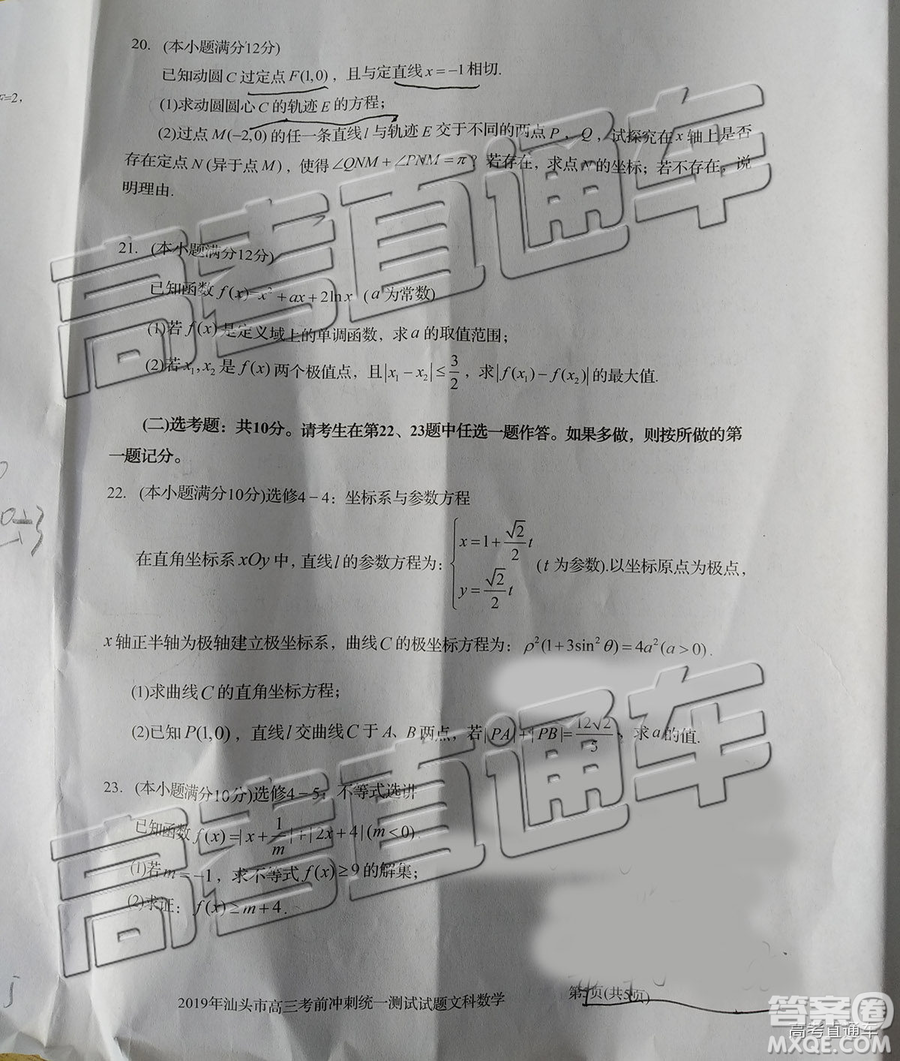 F=2，
20. (本小题满分12分)
已知动圆C过定点F(1,0)，且与定直线x=-1相切.
(1)求动圆圆心C的轨迹E的方程；
(2)过点M(-2,0)的任一条直线l与轨迹E交于不同的两点P，Q，试探究在x轴上是否
存在定点N(异于点M)，使得∠QNM+∠PNM=π？若存在，求点N的坐标；若不存在，说
明理由.
21. (本小题满分12分)
已知函数f(x)=x²+ax+2lnx (a为常数)
(1)若f(x)是定义域上的单调函数，求a的取值范围；
(2)若x₁,x₂是f(x)两个极值点，且|x₁-x₂|≤3/2，求|f(x₁)-f(x₂)|的最大值.
(二)选考题：共10分。请考生在第22、23题中任选一题作答。如果多做，则按所做的第
一题记分。
22. (本小题满分10分)选修4-4：坐标系与参数方程
在直角坐标系xOy中，直线l的参数方程为：{x=1+√2/2 t y=√2/2 t (t为参数).以坐标原点为极点，
x轴正半轴为极轴建立极坐标系，曲线C的极坐标方程为：ρ²(1+3sin²θ)=4a²(a>0).
(1)求曲线C的直角坐标方程；
(2)已知P(1,0)，直线l交曲线C于A、B两点，若|PA|+|PB|=12√2/5，求a的值.
23. (本小题满分10分)选修4-5：不等式选讲
已知函数f(x)=|x+1/m|+|2x+4|(m<0).
(1)若m=-1，求不等式f(x)≥9的解集；
(2)求证：f(x)≥m+4.
2019年汕头市高三考前冲刺统一测试试题文科数学 第5页(共5页)
高考直通车
高考直通车
高考直通车
答案圈
高考直通车
MXQE.COM